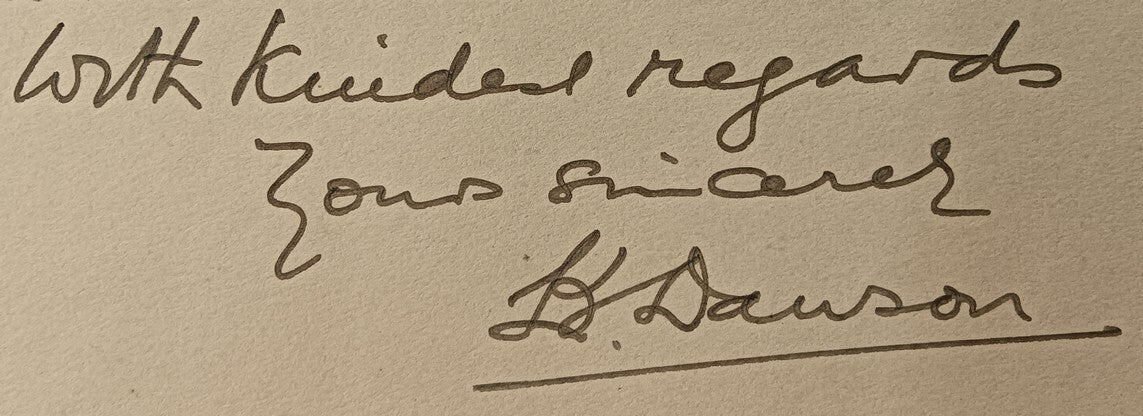 With Kindest regards
Yours sincerely
H. Dawson